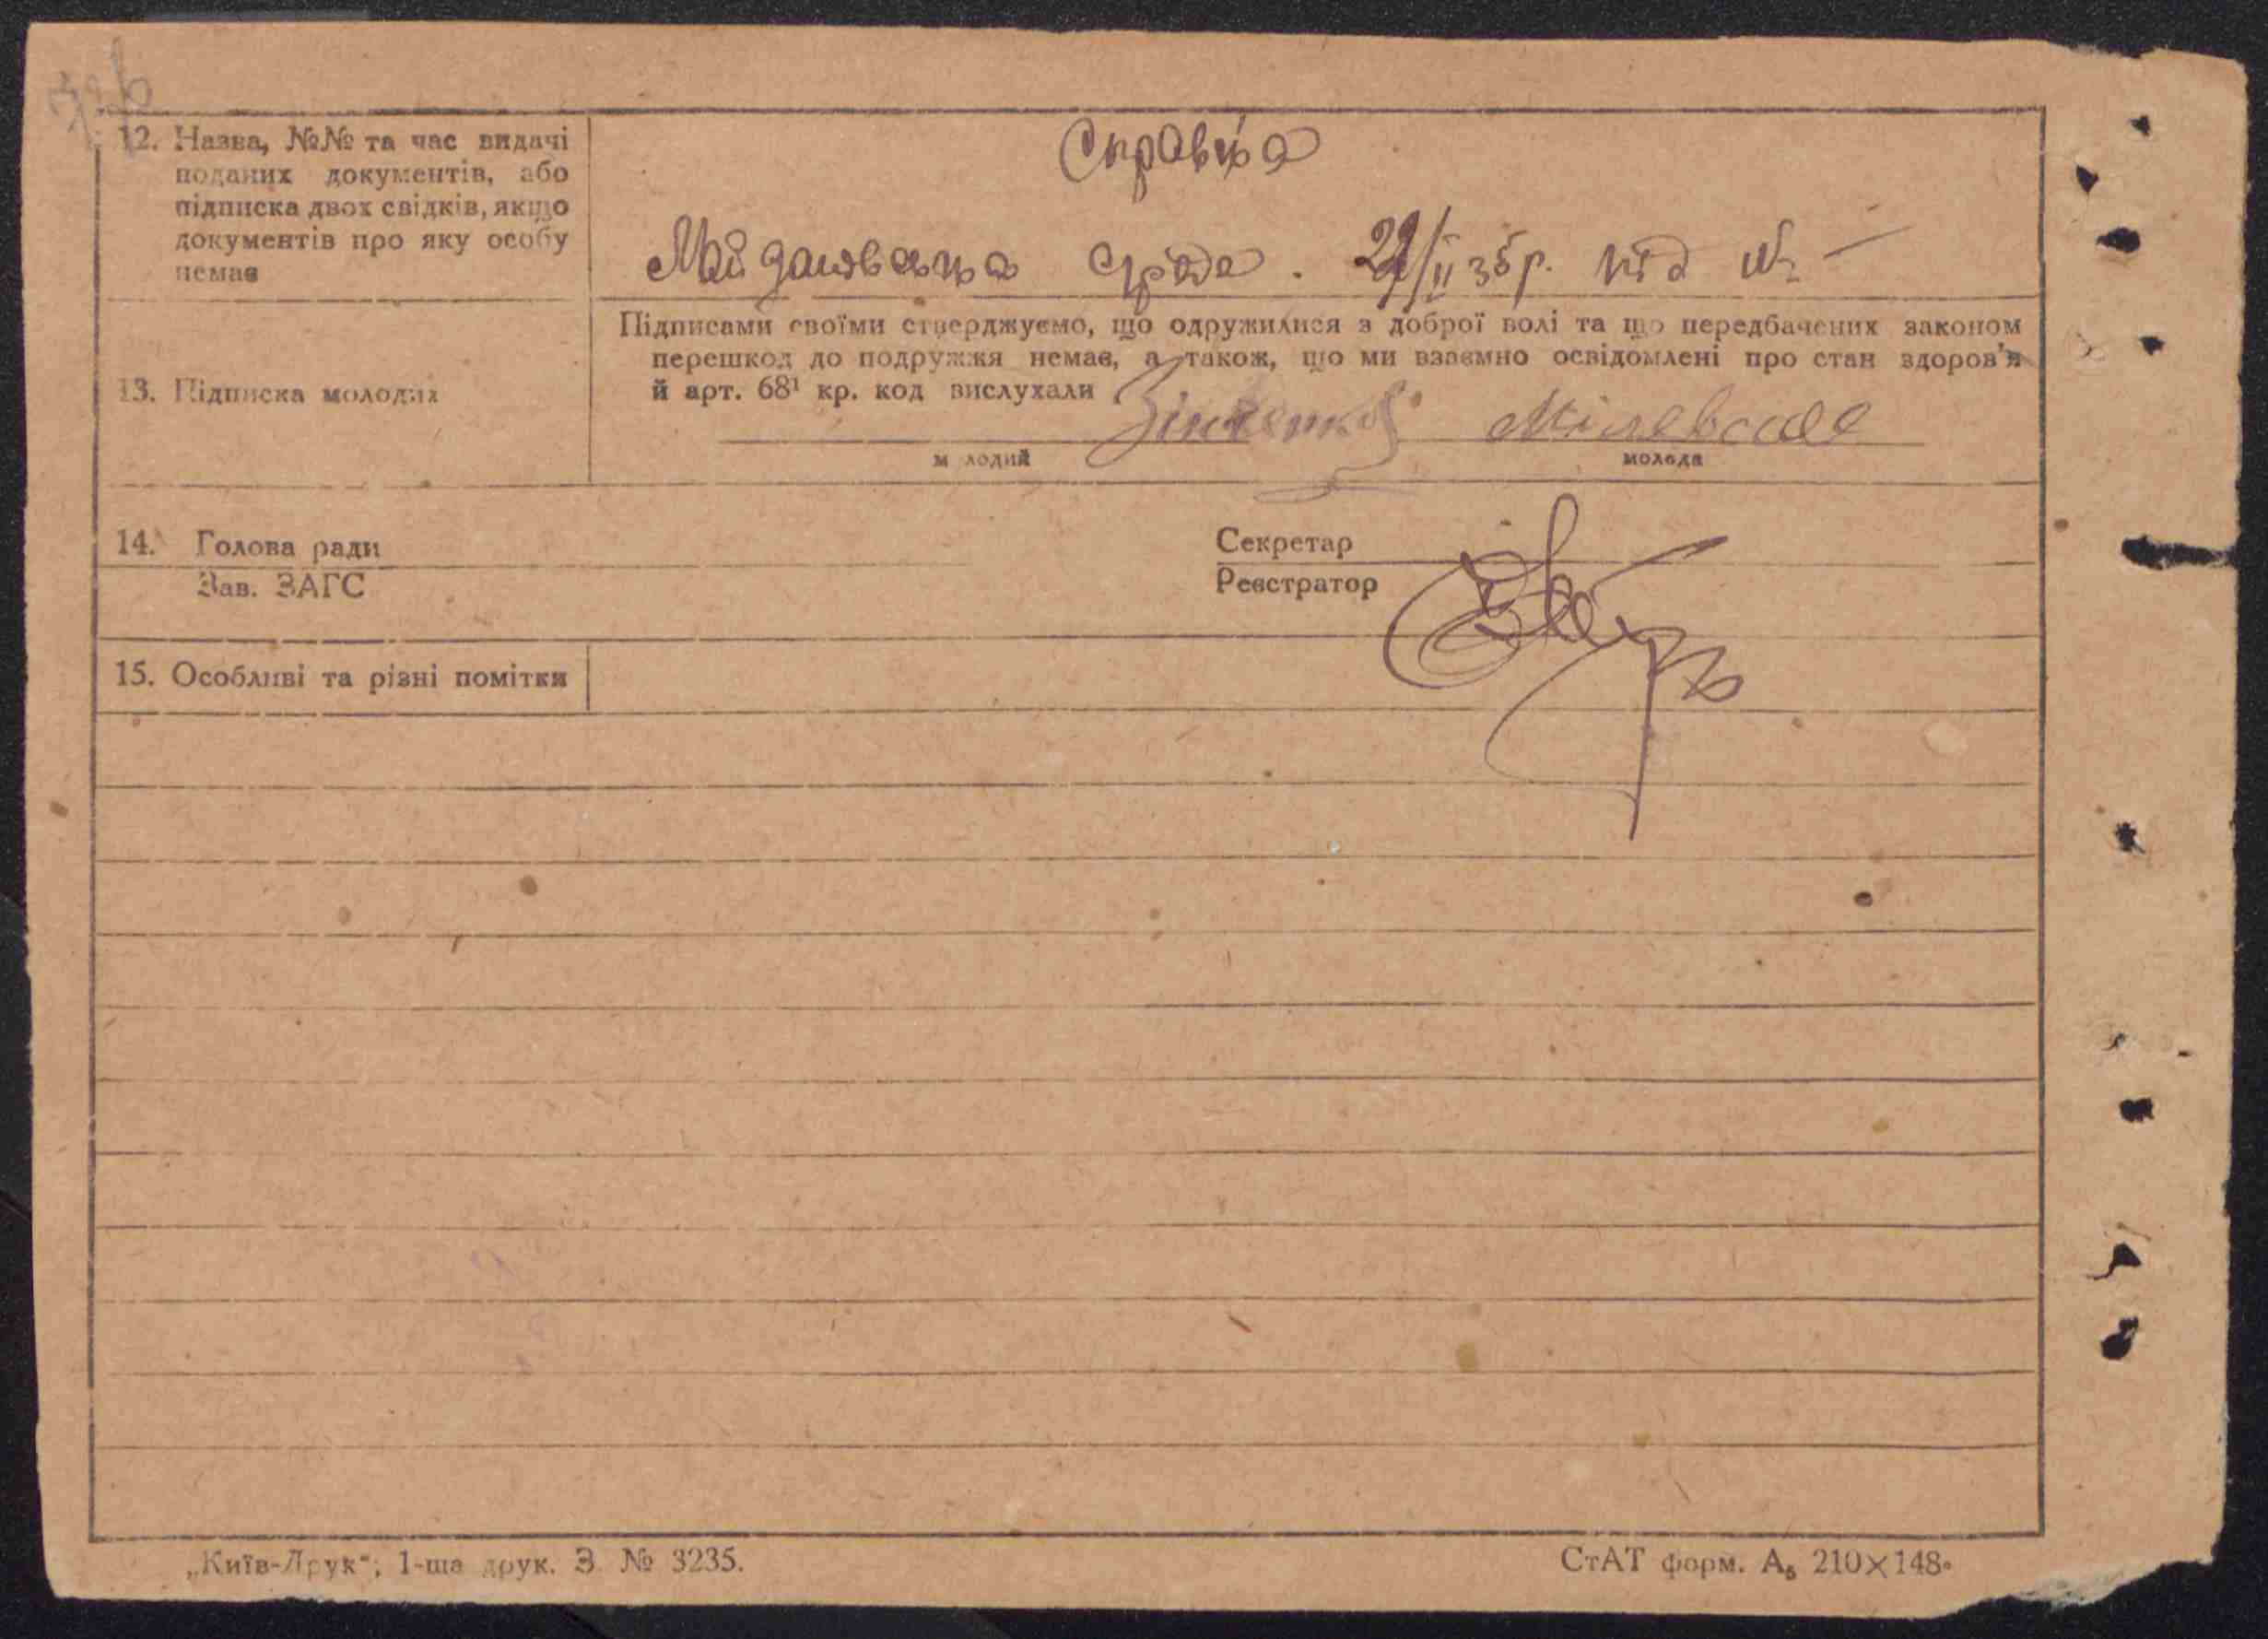 12. Назва, №№ та час видачі
поданих документів, або
підписка двох свідків, якщо
документів про яку особу
немає
Справка
Майданівська с/рада. 22/II 35р. під №—
13. Підписка молодих
Підписами своїми стверджуємо, що одружилися з доброї волі та що передбачених законом
перешкод до подружжя немає, а також, що ми взаємно освідомлені про стан здоров'я
й арт. 68¹ кр. код вислухали
Зінченко
м лодий
молода
14. Голова ради
Зав. ЗАГС
Секретар
Реєстратор
15. Особливі та різні помітки
„Київ-Друк“; 1-ша друк. З. № 3235.
СтАТ форм. А₅ 210×148.